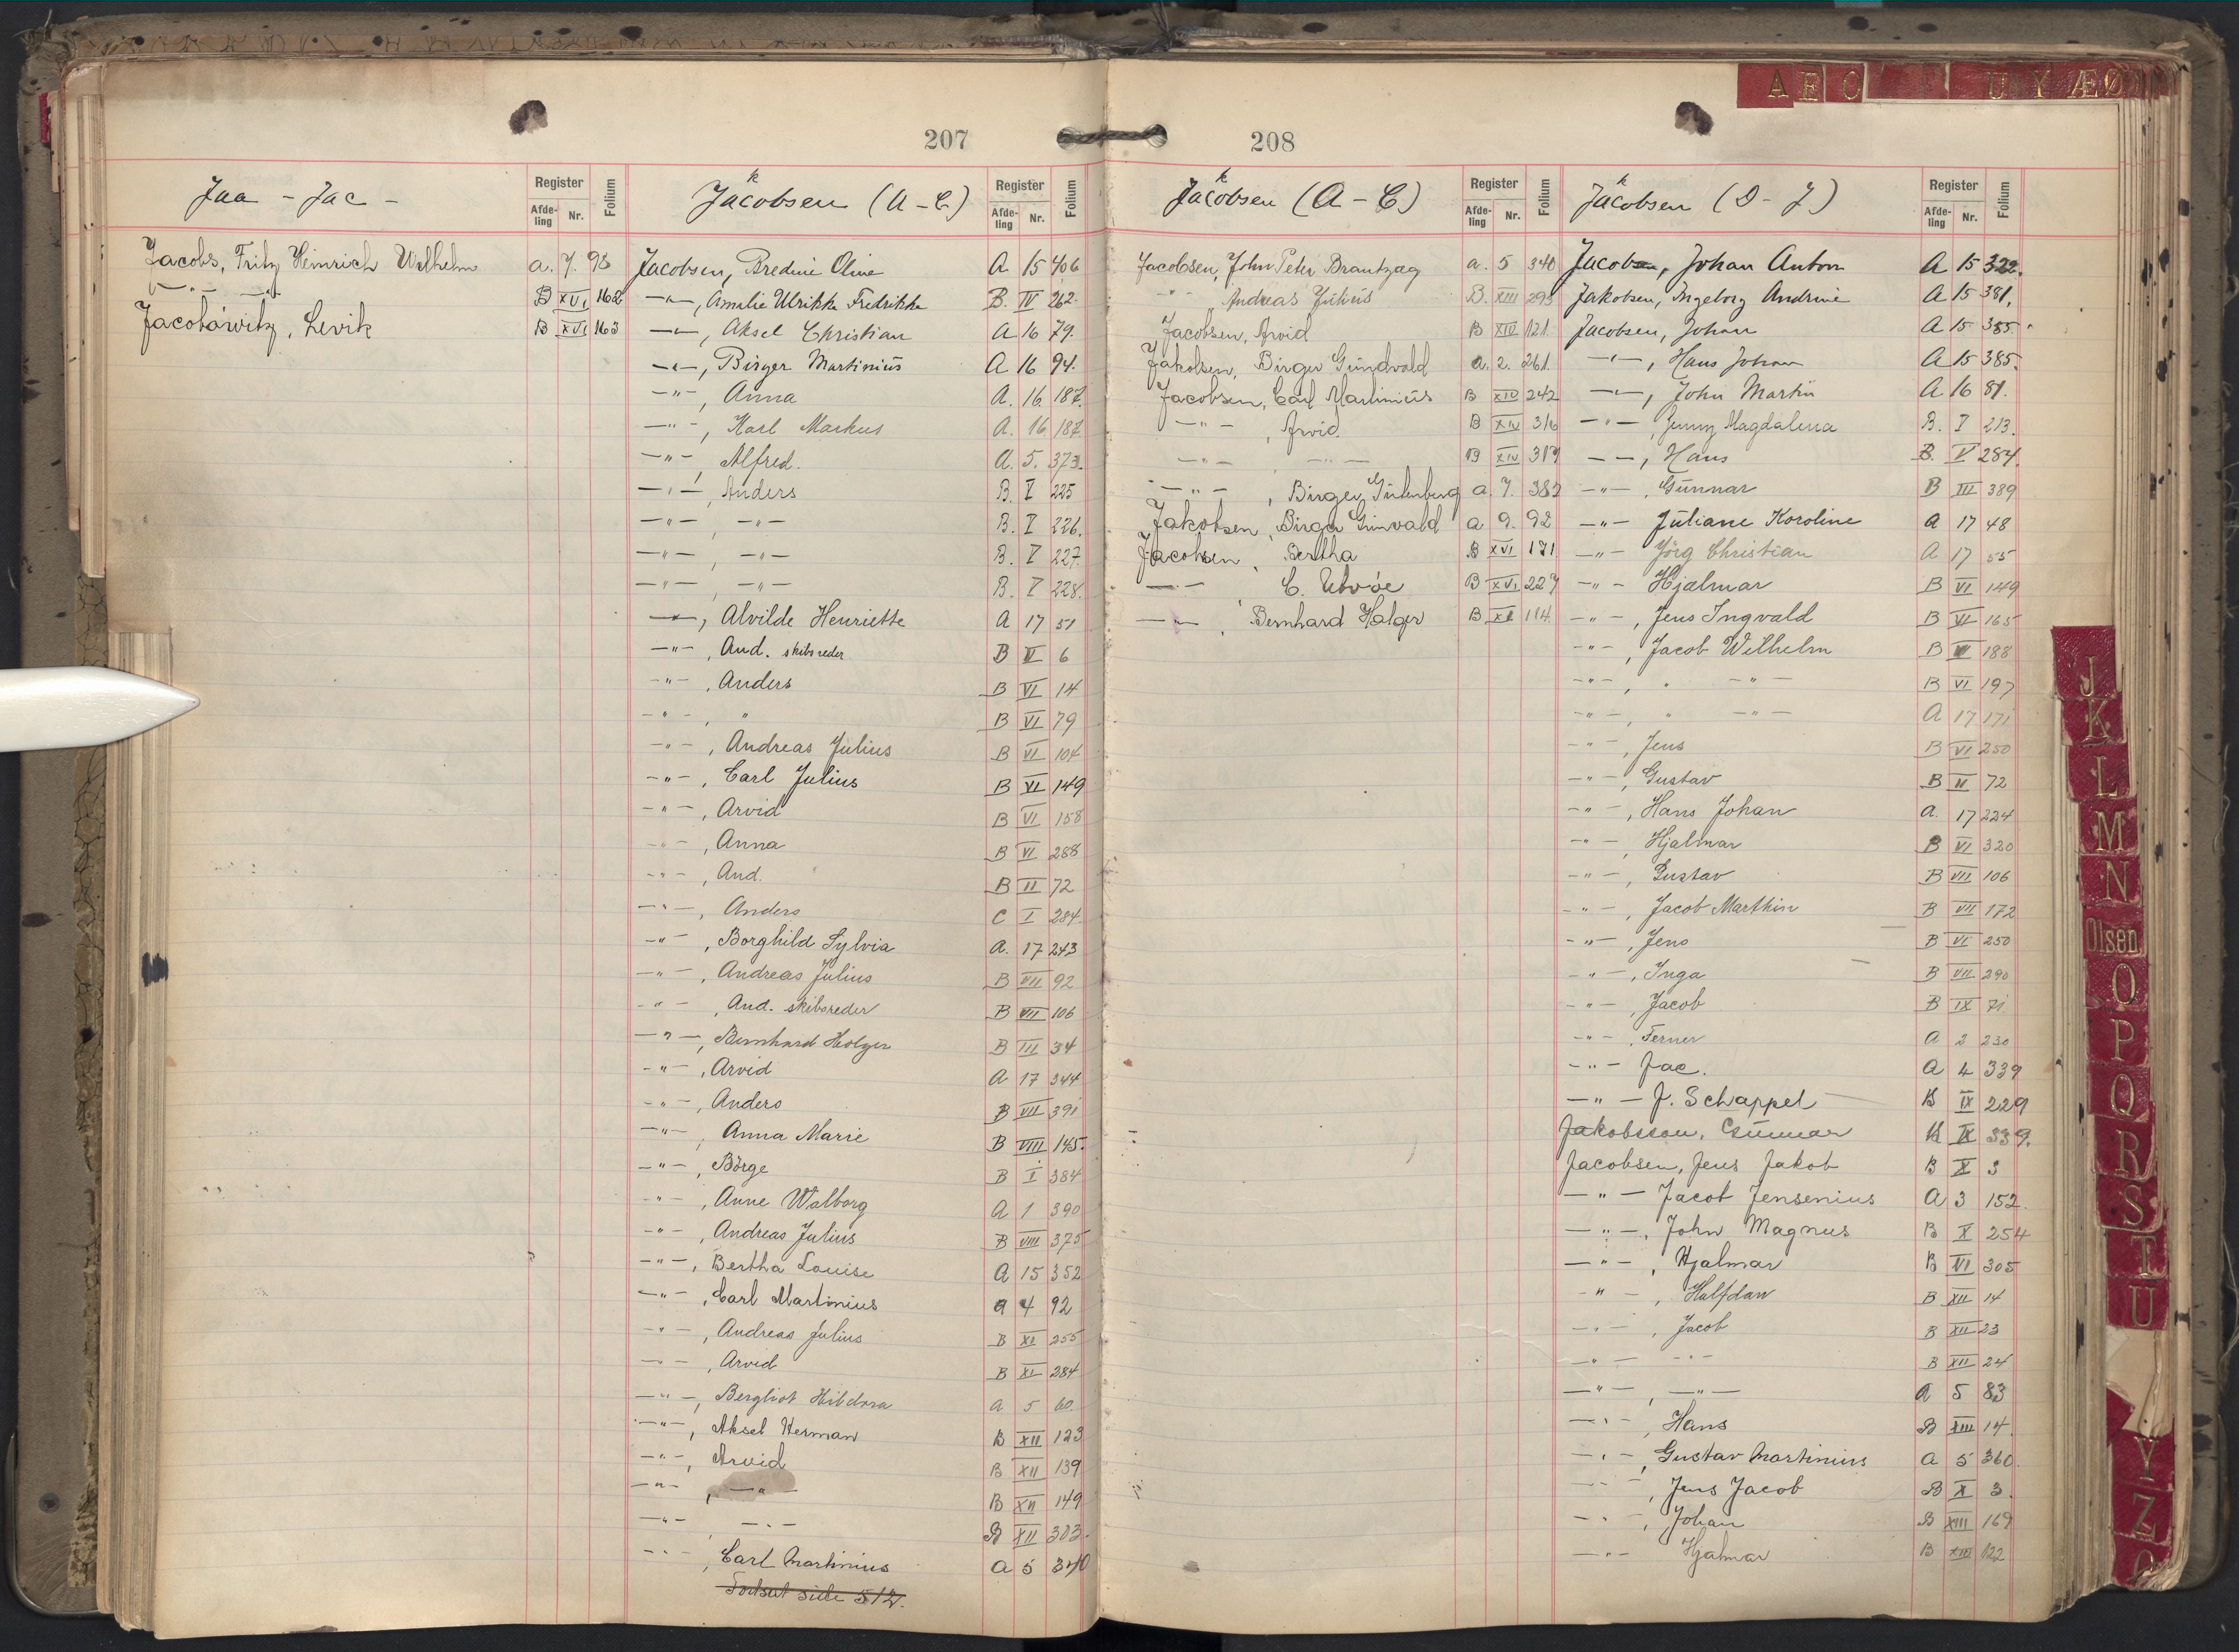 A E O U Y Æ Ø
207
Jaa - Jac -
Register Folium
Afde-ling Nr.
Jacobs, Fritz Heinrich Wilhelm a. 7. 98
— " — B XVI 162
Jacobowitz, Levik B XVI 163
k
Jacobsen (A - C)
Register Folium
Afde-ling Nr.
Jacobsen, Bredine Oline A 15 406
—"—, Amalie Ulrikke Fredrikke B. IV 262.
—"—, Aksel Christian A 16 79.
—"—, Birger Martinius A 16 94.
—"—, Anna A. 16 187.
—"—, Karl Markus A. 16 187.
—"—, Alfred. A. 5. 373.
—"—, Anders B. V 225
—"—, —"— B. V 226.
—"—, —"— B. V 227.
—"—, —"— B. V 228.
—"—, Alvilde Henriette A 17 51
—"—, And. skibsreder B II 6
—"—, Anders B VI 14
—"—, " B VI 79
—"—, Andreas Julius B VI 104
—"—, Carl Julius B VI 149
—"—, Arvid B VI 158
—"—, Anna B VI 288
—"—, And. B II 72
—"—, Anders C I 284.
—"—, Borghild Sylvia A. 17 243
—"—, Andreas Julius B VII 92
—"—, And. skibsreder B VII 106
—"—, Bernhard Holger B III 34
—"—, Arvid A 17 344
—"—, Anders B VII 391
—"—, Anna Marie B VIII 145.
—"—, Börge B I 384
—"—, Anne Walborg A 1 390
—"—, Andreas Julius B VIII 375
—"—, Bertha Louise A 15 352
—"—, Carl Martinius a 4 92
—"—, Andreas Julius B XI 255
—"—, Arvid B XI 284
—"—, Bergliot Hildora a 5 60.
—"—, Aksel Herman B XII 123
—"—, Arvid B XII 139
—"—, —"— B XII 149
—"—, —"— B XII 303.
—"—, Carl Martinius a 5 340
Fortsat side 512.
208
k
Jacobsen (A - C)
Register Folium
Afde-ling Nr.
Jacobsen, John Peter Brantzæg a. 5 340
—"—, Andreas Julius B. XIII 295
Jacobsen, Arvid B XIV 121.
Jakobsen, Birger Gundvald a. 2. 261.
Jacobsen, Carl Martinius B XIV 242
—"—, Arvid B XIV 316
—"— —"— B XIV 317
—"—, Birger Gutenberg a. 7. 382
Jakobsen, Birger Gunvald a 9. 92
Jacobsen, Bertha B XVI 171
—"— C. Utvöe B XVI 227
—"—, Bernhard Holger B XI 114
k
Jacobsen (D - J)
Register Folium
Afde-ling Nr.
Jacobsen, Johan Anton A 15 322.
Jakobsen, Ingeborg Andrine A 15 381.
Jacobsen, Johan A 15 385.
—"—, Hans Johan A 15 385.
—"—, John Martin A 16 81.
—"—, Jenny Magdalena B. I 213.
—"—, Hans B. V 284.
—"—, Gunnar B III 389
—"— Juliane Karoline A 17 48
—"— Jörg Christian A 17 55
—"— Hjalmar B VI 149
—"—, Jens Ingvald B VI 165
—"—, Jacob Wilhelm B VI 188
—"—, " —"— B VI 197
—"—, " —"— A 17 171
—"—, Jens B VI 250
—"—, Gustav B II 72
—"—, Hans Johan A. 17 224
—"—, Hjalmar B VI 320
—"—, Gustav B VII 106
—"—, Jacob Marthin B VII 172
—"—, Jens B VI 250
—"—, Inga B VII 290
—"—, Jacob B IX 71
—"—, Ferner A 2 230
—"— Jac. A 4 339
—"— J. Schappel B IX 229
Jakobsson, Gunnar B IX 339.
Jacobsen, Jens Jakob B X 3
—"— Jacob Jensenius A 3 152.
—"—, John Magnus B X 254
—"—, Hjalmar B VI 305
—"—, Halfdan B XII 14
—"—, Jacob B XII 23
—"— —"— B XII 24
—"—, —"— A 5 83
—"—, Hans B XIII 14.
—"—, Gustav Martinius a 5 360.
—"—, Jens Jacob B X 3.
—"—, Johan B XIII 169
—"— Hjalmar B XIV 122
J
K
L
M
N
Olsen
O
P
Q
R
S
T
U
Y
Z